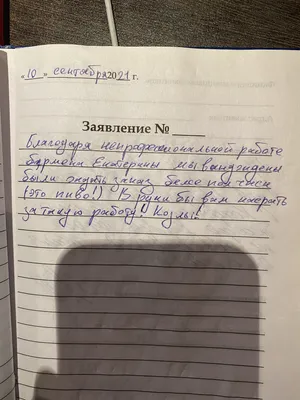 « 10 » сентября 2021 г.
Заявление № ____
Благодаря непрофессиональной работе
бармена Екатерины мы вынуждены
были ждать заказ более получаса
(это пиво!) В руки бы вам насрать
за такую работу! Козлы!